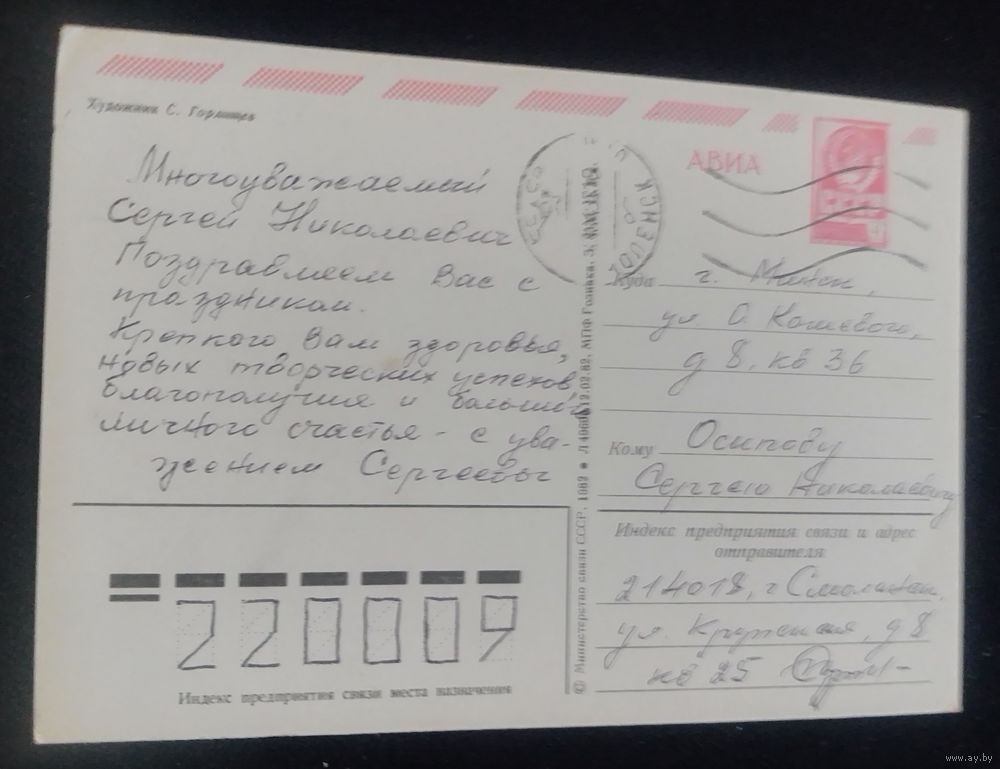 Художник С. Горлищев
АВИА
СССР
Многоуважаемый
Сергей Николаевич
Поздравляем Вас с
праздником.
Крепкого Вам здоровья,
новых творческих успехов,
благополучия и большого
личного счастья - с ува-
жением Сергеевы
Куда г. Минск,
ул О. Кошевого,
д 8, кв 36
Кому Осипову
Сергею Николаевичу
Индекс предприятия связи и адрес
отправителя
214018, г Смоленск,
ул.
д 8
кв 25
220009
Индекс предприятия связи места назначения
© Министерство связи СССР, 1982
12.02.82. МПФ Гознака.
www.ay.by